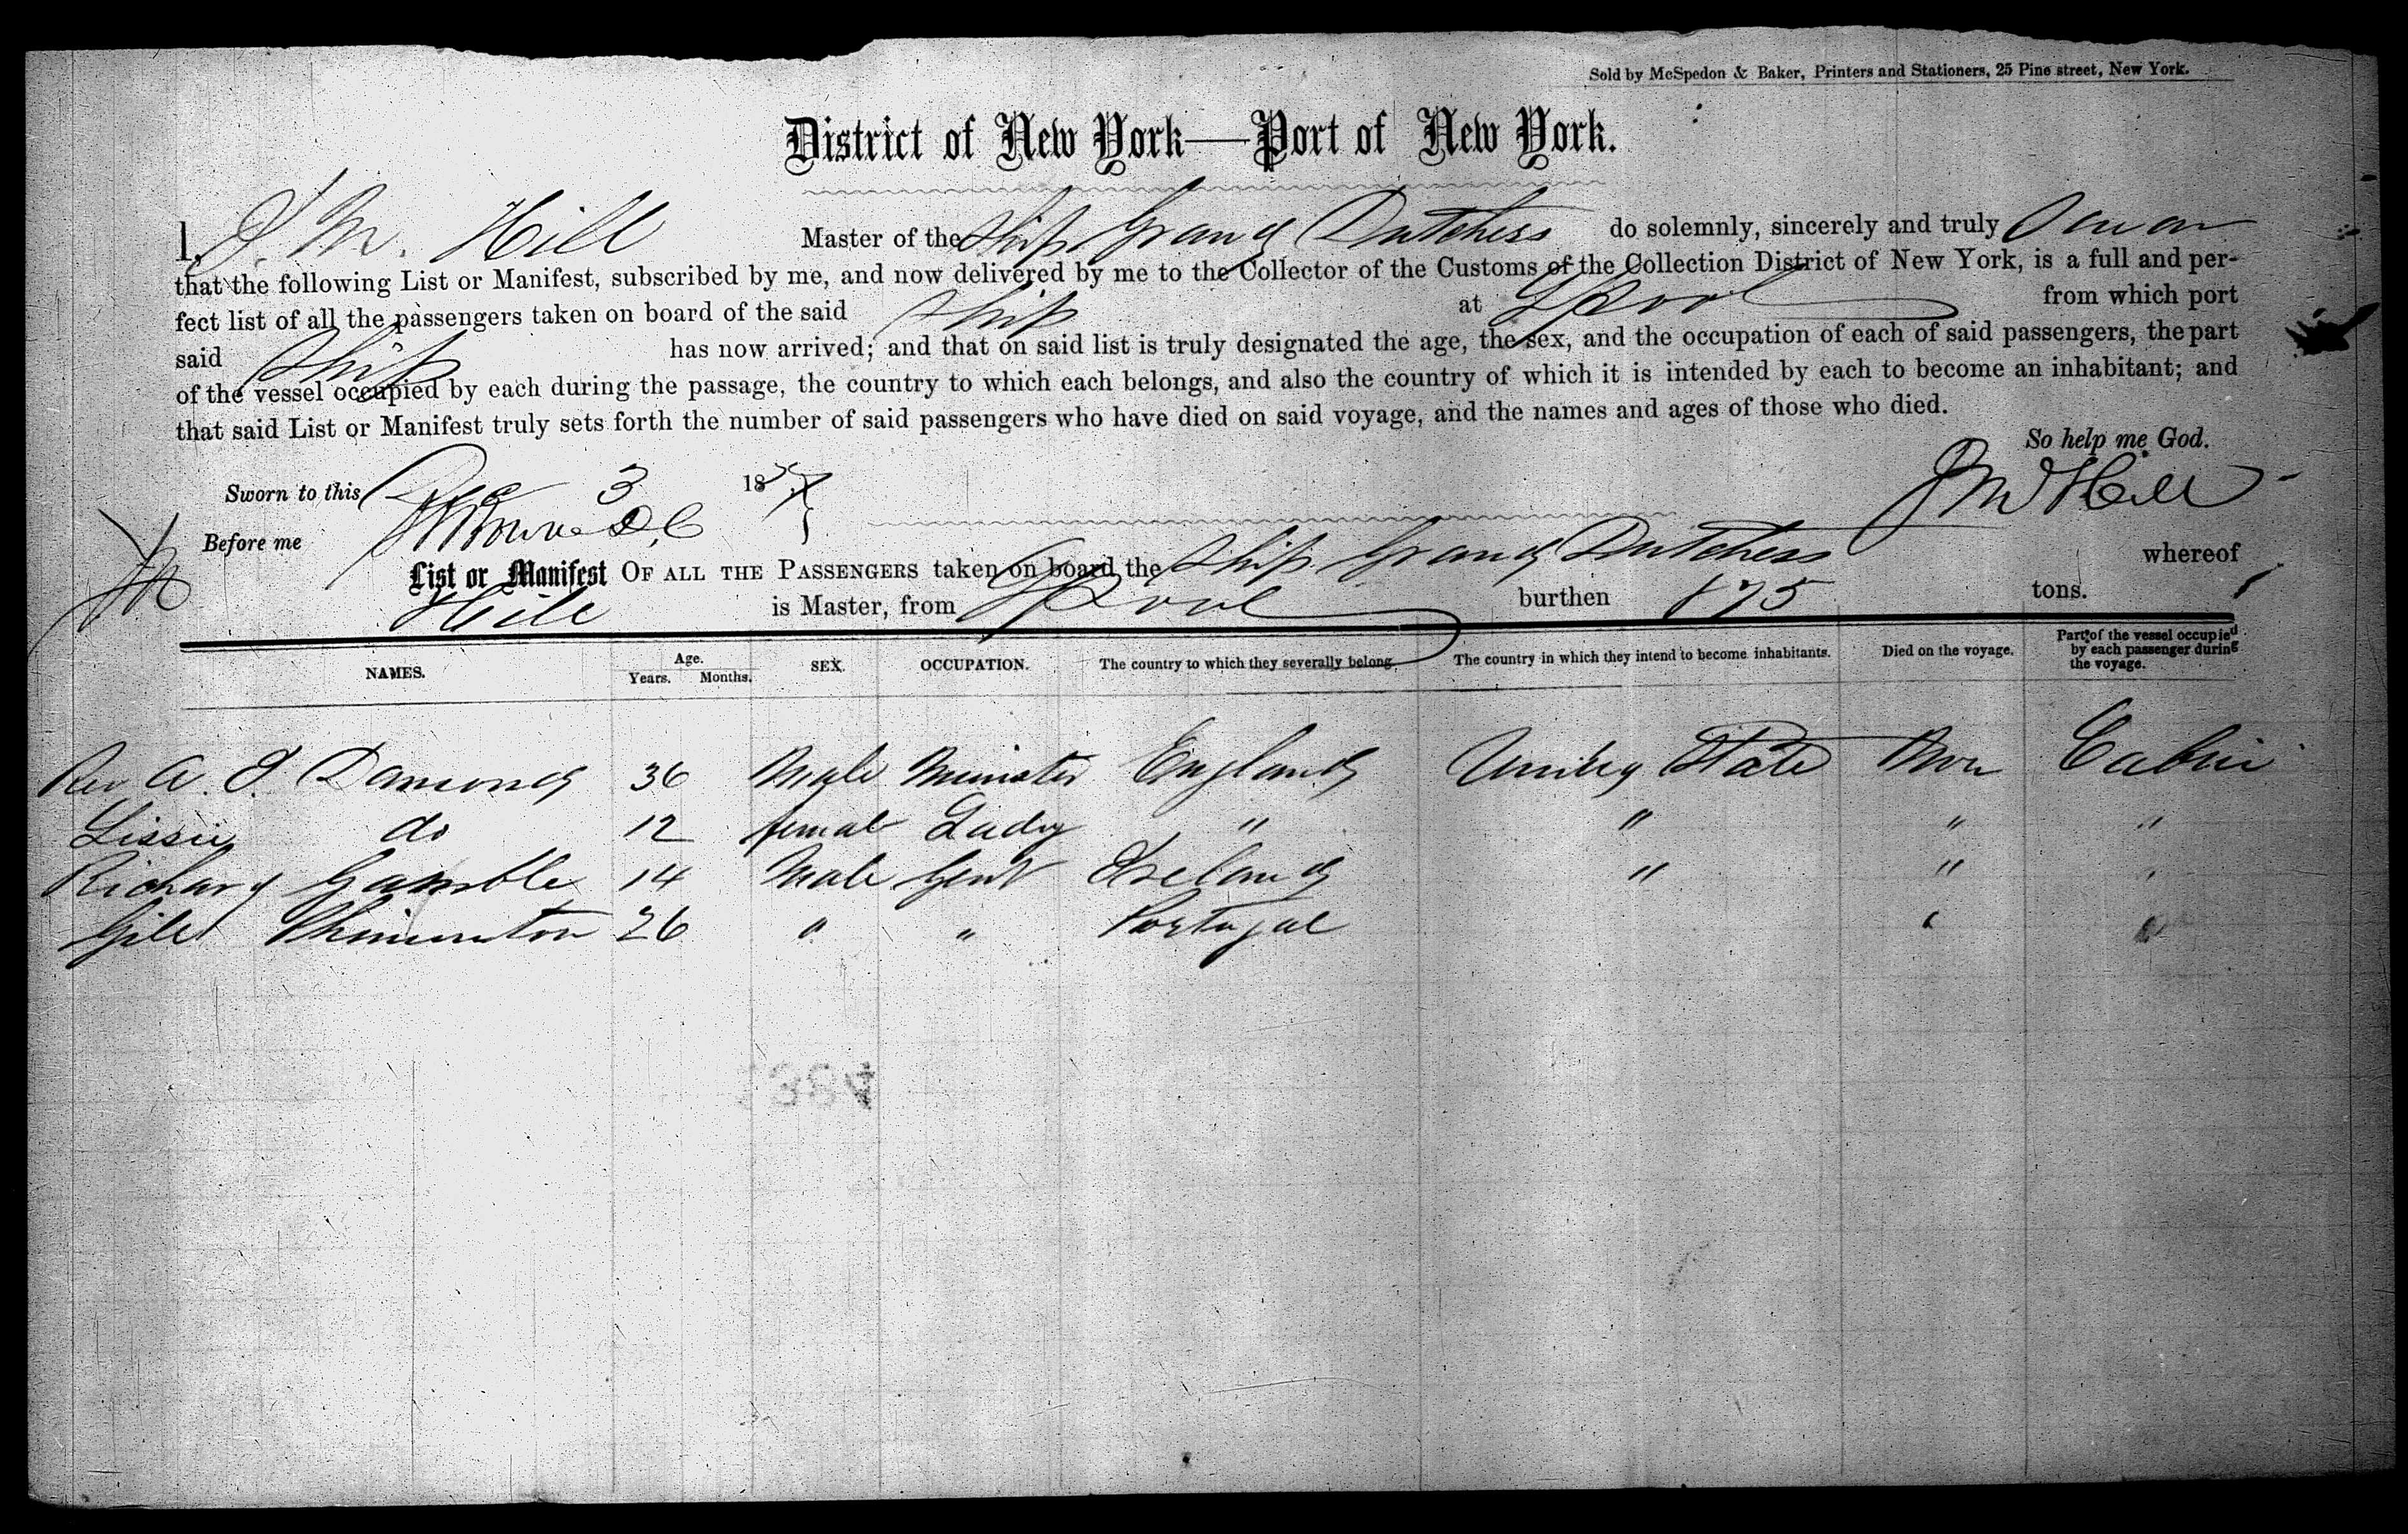 Sold by McSpedon & Baker, Printers and Stationers, 25 Pine street, New York.
District of New York—Port of New York.
I, J. M. Hill Master of the Ship Grand Dutchess do solemnly, sincerely and truly swear
that the following List or Manifest, subscribed by me, and now delivered by me to the Collector of the Customs of the Collection District of New York, is a full and per-
fect list of all the passengers taken on board of the said Ship at LPool from which port
said Ship has now arrived; and that on said list is truly designated the age, the sex, and the occupation of each of said passengers, the part
of the vessel occupied by each during the passage, the country to which each belongs, and also the country of which it is intended by each to become an inhabitant; and
that said List or Manifest truly sets forth the number of said passengers who have died on said voyage, and the names and ages of those who died.
So help me God.
Sworn to this 3 185 J M Hill
Before me
List or Manifest OF ALL THE PASSENGERS taken on board the Ship Grand Dutchess whereof
Hill is Master, from LPool burthen tons.
NAMES. Age. Years. Months. SEX. OCCUPATION. The country to which they severally belong. The country in which they intend to become inhabitants. Died on the voyage. Part of the vessel occupied by each passenger during the voyage.
Rev A. J. Damond 36 Male Minister England United State Cabin
Lissie do 12 female Lady " " " "
Richard Gamble 14 Male Gent Ireland " " "
26 " " Portugal " "